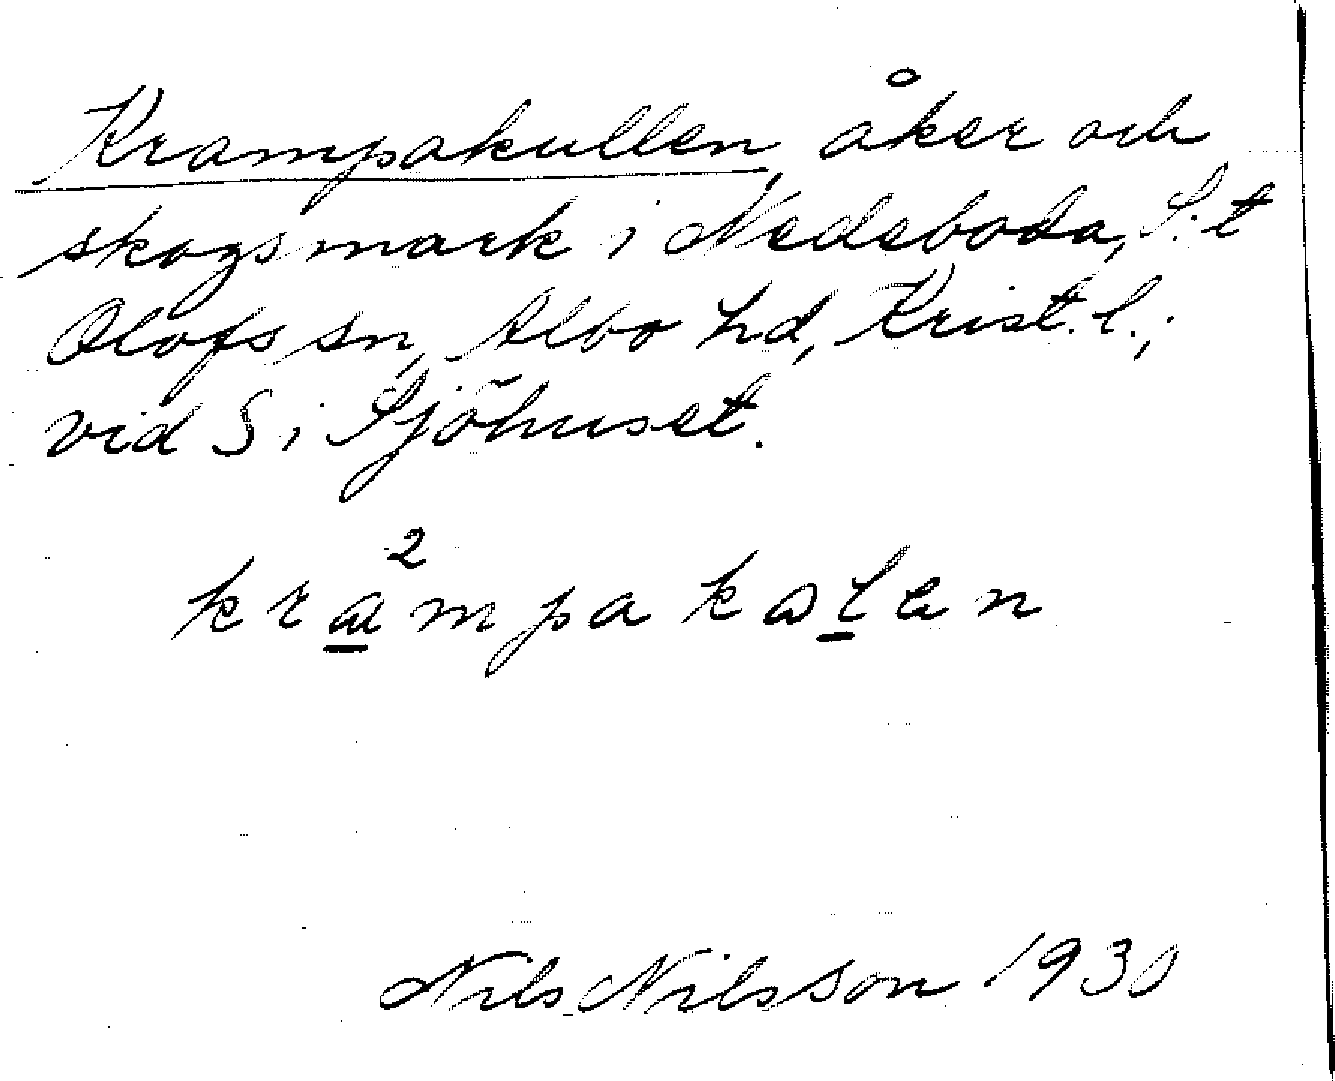 Krampakullen, åker och
skogsmark i Nedeboda, S:t
Olofs sn, Albo hd, Krist. l.;
vid S i Sjöhuset.
2
krampakωlen
Nils Nilsson 1930